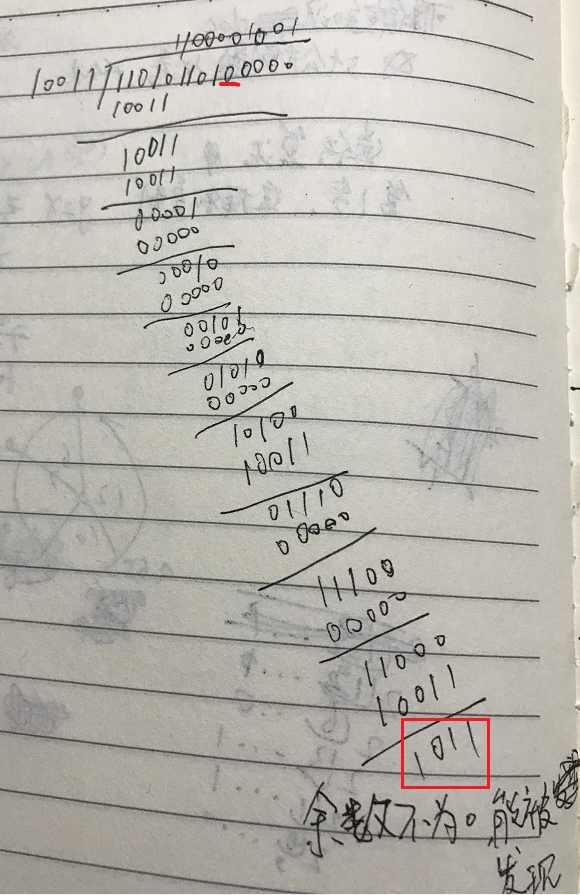 1100001001
10011 11010110100000
10011
10011
10011
00001
00000
00010
00000
00000
01010
00000
10100
10011
01110
00000
11100
00000
11000
10011
1011
余数仅不为0 能被
发现